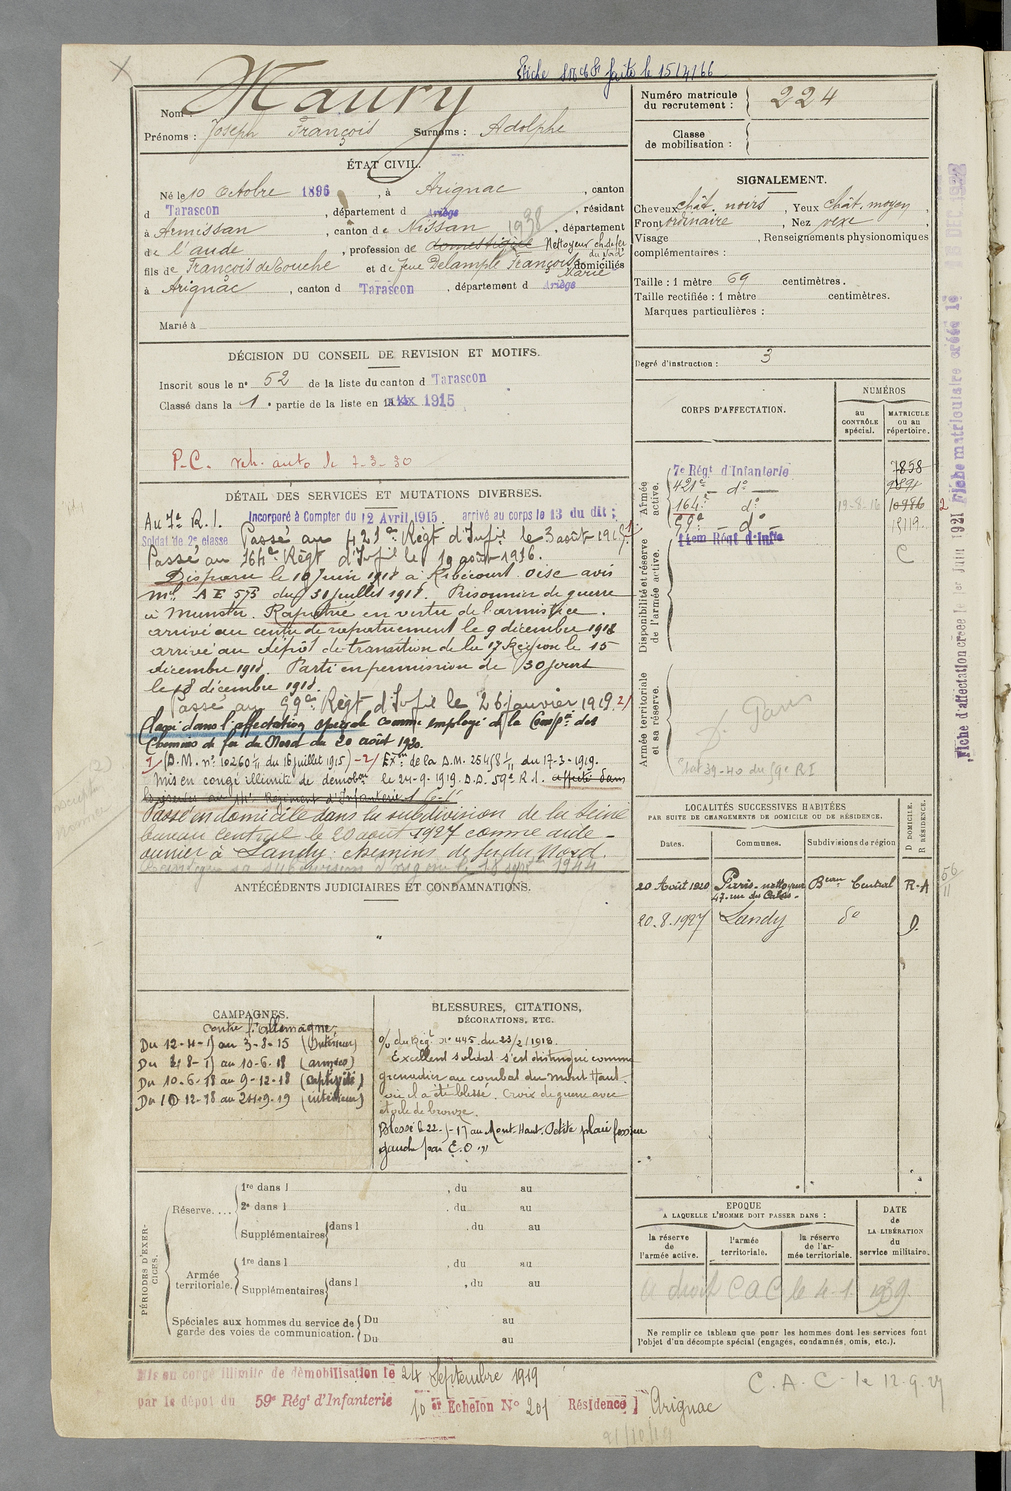 Fiche faite le 15/4/66
Nom : Maury
Prénoms : Joseph François Surnoms : Adolphe
Numéro matricule du recrutement : 224
Classe de mobilisation :
ÉTAT CIVIL.
Né le 10 Octobre 1896, à Arignac, canton
d Tarascon, département d Ariège, résidant
à Armissan, canton de Nissan 1938, département
de l'aude, profession de domestique Nettoyeur ch de fer du Nord
fils de François de Touche et de feue Delample Françoise Marie domiciliés
à Arignac, canton d Tarascon, département d Ariège
Marié à
SIGNALEMENT.
Cheveux chât. noirs, Yeux chât. moyen,
Front ordinaire, Nez vexe,
Visage , Renseignements physionomiques
complémentaires :
Taille : 1 mètre 69 centimètres.
Taille rectifiée : 1 mètre centimètres.
Marques particulières :
Degré d'instruction : 3
DÉCISION DU CONSEIL DE REVISION ET MOTIFS.
Inscrit sous le n° 52 de la liste du canton d Tarascon
Classé dans la 1e partie de la liste en 1915
P.C. veh. auto le 7-3-30
CORPS D'AFFECTATION.
NUMÉROS
au CONTRÔLE spécial.
MATRICULE ou au répertoire.
Armée active.
7e Régt d'Infanterie 7858
421e — d° —
164e d° 19-8-16 10986
59e d° 15119
14em Régt d'Infie C
Disponibilité et réserve de l'armée active.
Armée territoriale et sa réserve.
Paris
39-40 du 59e R I
DÉTAIL DES SERVICES ET MUTATIONS DIVERSES.
Au 7e R.I. Incorporé à Compter du 12 Avril 1915 arrivé au corps le 13 du dit ;
Soldat de 2e classe Passé au 421e Régt d'Infie le 3 août 1915 1/
Passé au 164e Régt d'Infie le 19 août 1916.
Disparu le 10 Juin 1918 à Ribécourt Oise avis
Mel AE 573 du 31 juillet 1918. Prisonnier de guerre
à Munster. Rapatrié en vertu de l'armistice.
arrivé au centre de rapatriement le 9 décembre 1918
arrivé au dépôt de transition de la 17 Région le 15
décembre 1918. Parti en permission de 30 jours
le 18 décembre 1918.
Passé au 59e Régt d'Infie le 26 janvier 1919. 2/
Classé dans l'affectation spéciale comme employé de la Compie des
Chemins de fer du Nord du 20 août 1920.
1/ (D.M. n° 10260 1/11 du 16 juillet 1915) - 2/ Exon de la D.M. 25458 1/11 du 17-3-1919.
Mis en congé illimité de démobon le 24-9-1919. D.D. 59e R.I. affecté dans
la réserve au 14e Régiment d'Infanterie
Passé en domicile dans la subdivision de la Seine
bureau central le 20 août 1927 comme aide-
ouvrier à Landy : chemins de fer du Nord.
ANTÉCÉDENTS JUDICIAIRES ET CONDAMNATIONS.
"
LOCALITÉS SUCCESSIVES HABITÉES
PAR SUITE DE CHANGEMENTS DE DOMICILE OU DE RÉSIDENCE.
Dates. Communes. Subdivisions de région D DOMICILE. R RÉSIDENCE.
20 Août 1920 Paris - nettoyeur Beau Central R-A
20.8.1927 Landy d° D.
CAMPAGNES.
contre l'allemagne
Du 12-4-15 au 3-8-15 (intérieur)
Du 4-8-15 au 10-6-18 (armées)
Du 10-6-18 au 9-12-18 (captivité)
Du 10-12-18 au 24-9-19 (intérieur)
BLESSURES, CITATIONS,
DÉCORATIONS, ETC.
O/ du Régt n° 445 du 23/2/1918.
Excellent soldat s'est distingué comme
grenadier au combat du Mont Haut
où il a été blessé. Croix de guerre avec
étoile de bronze.
Blessé le 22-5-17 au Mont-Haut. Petite plaie
gauche par E.O
PÉRIODES D'EXERCICES.
Réserve....
1re dans l , du au
2e dans l , du au
Supplémentaires dans l , du au
Armée territoriale.
1re dans l , du au
Supplémentaires dans l , du au
Spéciales aux hommes du service de garde des voies de communication.
Du au
Du au
EPOQUE
A LAQUELLE L'HOMME DOIT PASSER DANS :
la réserve de l'armée active.
l'armée territoriale.
la réserve de l'armée territoriale.
DATE de LA LIBÉRATION du service militaire.
a droit C A C le 4-1 1939.
Ne remplir ce tableau que pour les hommes dont les services font
l'objet d'un décompte spécial (engagés, condamnés, omis, etc.).
Mis en congé illimité de démobilisation le 24 Septembre 1919
par le dépot du 59e Régt d'Infanterie 10 er Echelon N° 201 Résidence Arignac
C.A.C. le 12.9.
Fiche d'affectation créée le 1er Juin 1921
Fiche matriculaire créée le